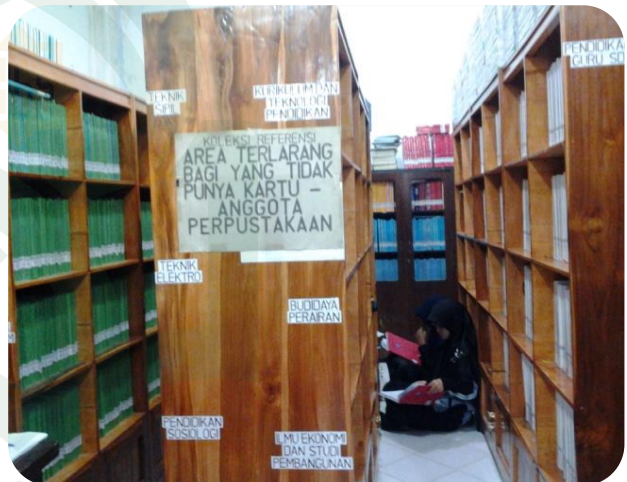 TEKNIK
SIPIL
KURIKULUM DAN
TEKNOLOGI
PENDIDIKAN
PENDIDIKA
GURU SD
KOLEKSI REFERENSI
AREA TERLARANG
BAGI YANG TIDAK
PUNYA KARTU –
ANGGOTA
PERPUSTAKAAN
TEKNIK
ELEKTRO
BUDIDAYA
PERAIRAN
PENDIDIKAN
SOSIOLOGI
ILMU EKONOMI
DAN STUDI
PEMBANGUNAN